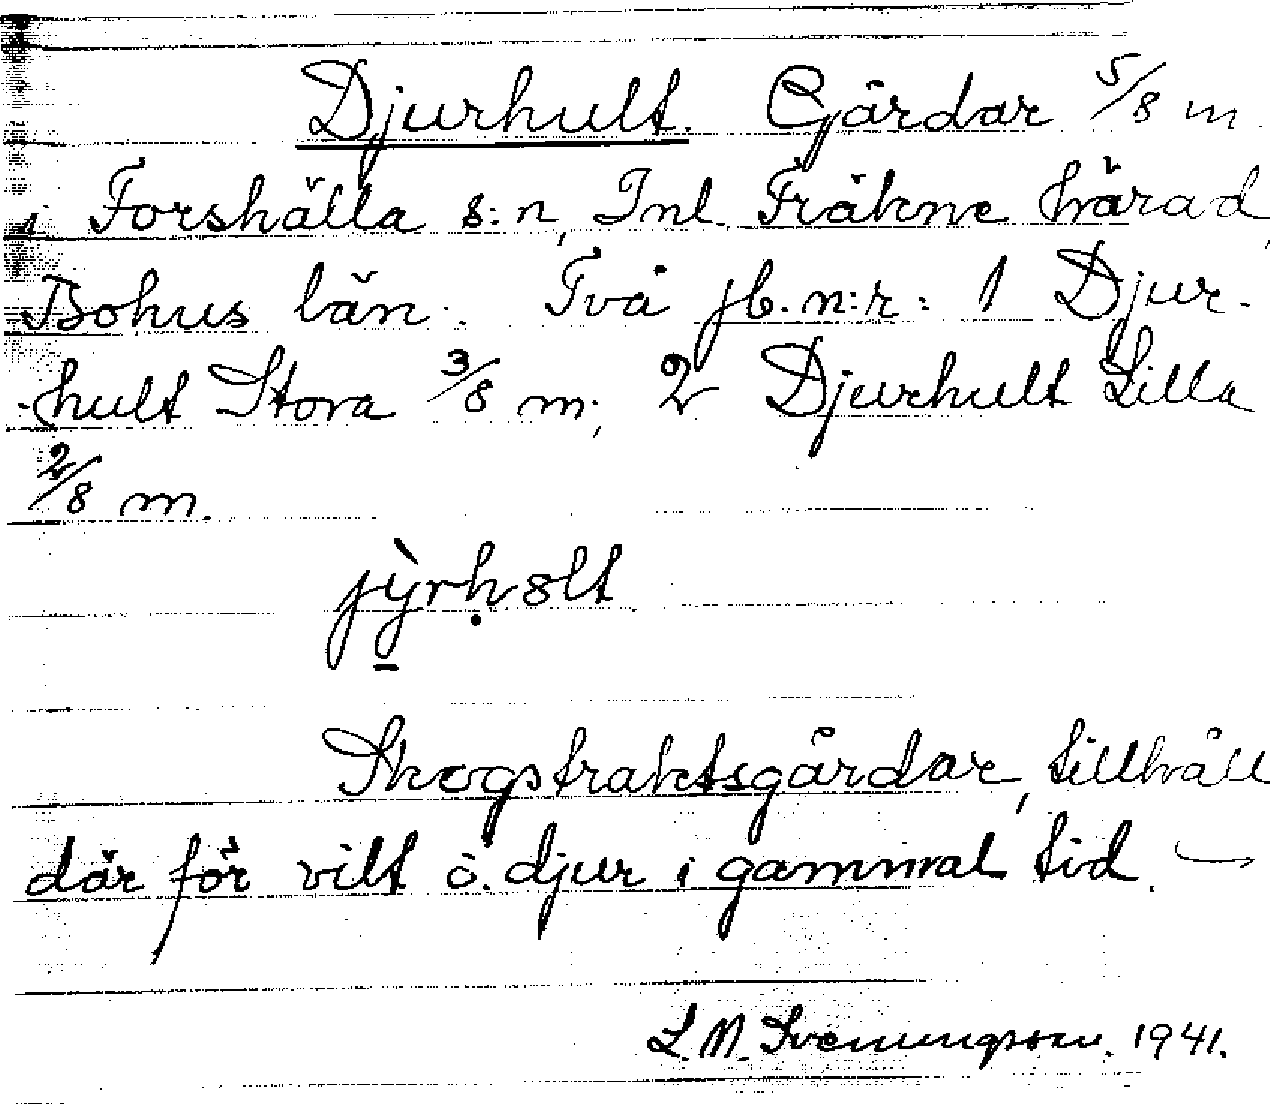 Djurhult. Gårdar 5/8 m
i Forshälla s:n, Inl. Fräkne härad,
Bohus län. Två jb. n:r: 1 Djur-
hult Stora 3/8 m; 2 Djurhult Lilla
2/8 m.
jỳrḥ8lt
Skogstraktsgårdar, tillhåll
där för vilt o. djur i gammal tid. —
L. M. Svenungsson. 1941.